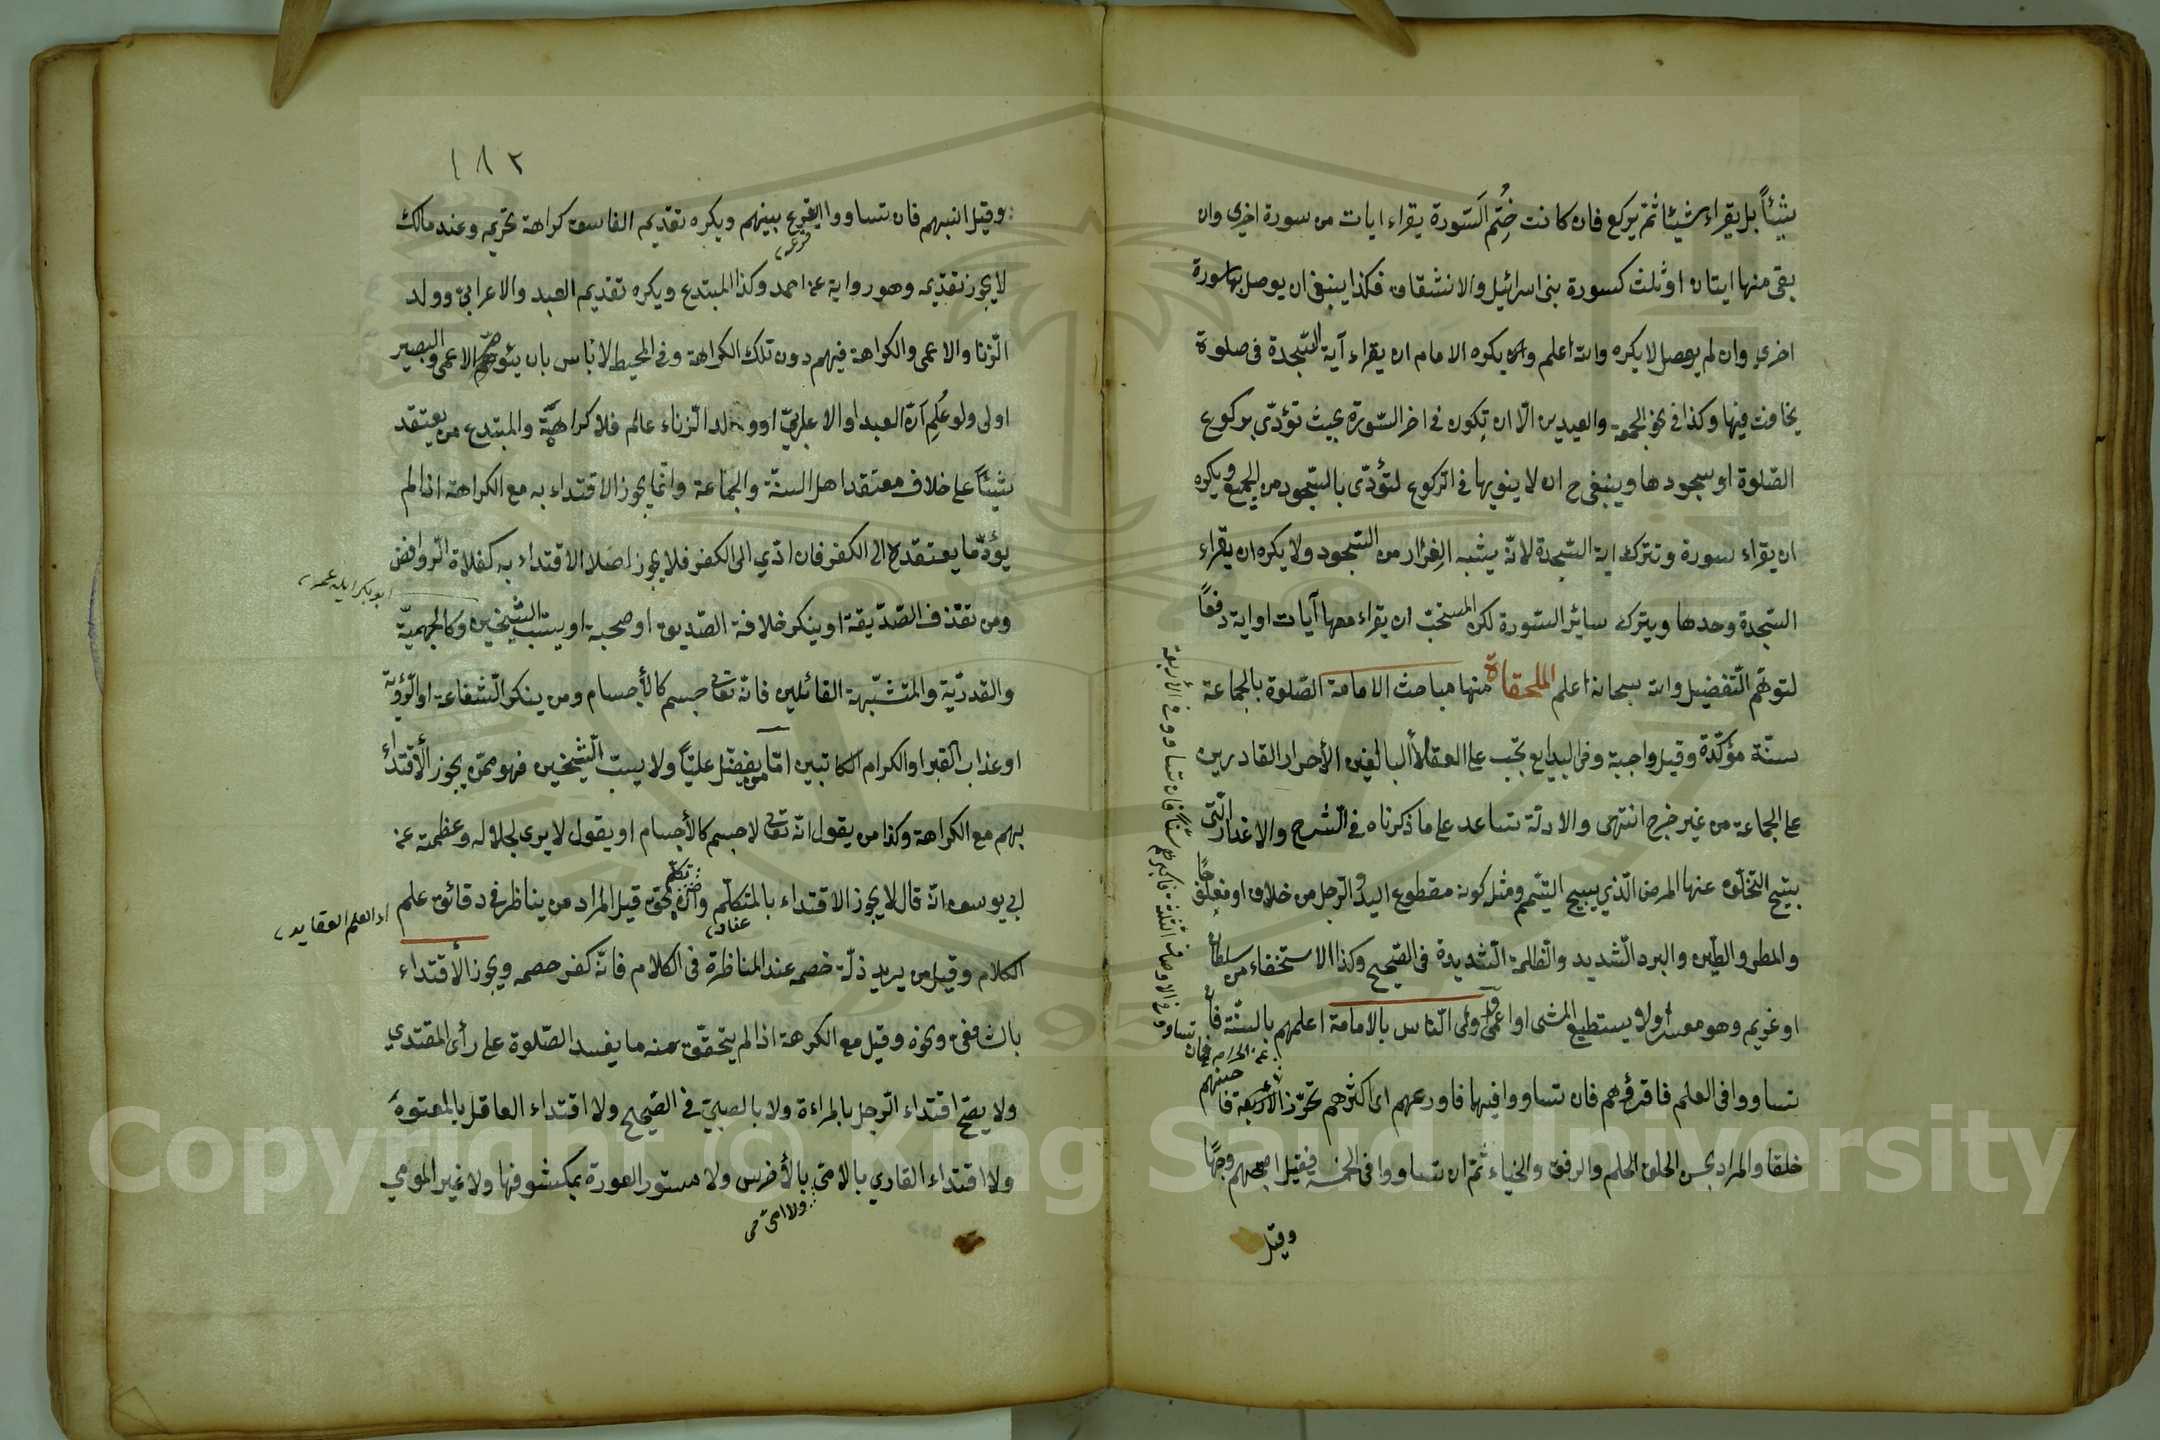 شيئاً بل يقراء شيئا ثم يركع فان كانت ختم السّورة يقراء ايات من سورة اخرى وان
بقى منها ايتان او ثلث كسورة بنى اسرائيل والانشقاق فكذا ينبغى ان يوصل بها سورة
اخرى وان لم يوصل لا يكره والله اعلم ويكره الامام ان يقراء آية السّجدة فى صلوة
يخافت فيها وكذا فى نحو الجمعة والعيدين الّا ان تكون فى اخر السّورة بحيث تؤدّى بركوع
الصّلوة او سجودها وينبغى ح ان لا ينويها فى الرّكوع لتؤدّى بالسّجود من الجميع ويكره
ان يقراء سورة وتترك اية السّجدة لانّه يشبه الفرار من السّجود ولا يكره ان يقراء
السّجدة وحدها ويترك سائر السّورة لكن المستحبّ ان يقراء معها آيات او اية دفعاً
لتوهّم التّفضيل والله سبحانه اعلم الملحقاة منها مباحث الامامة الصّلوة بالجماعة
سنّة مؤكّدة وقيل واجبة وفى البدايع تجب على العقلاء البالغين الأحرار القادرين
على الجماعة من غير حرج انتهى والادلّة تساعد على ما ذكرناه فى الشرح والاعذار الّتى
يبيح التّخلّف عنها المرض الّذي يبيح التيمّم ومثل كونه مقطوع اليد والرّجل من خلاف او مفلوجًا
والمطر والطّين والبرد الشّديد والظّلمة الشّديدة فى الصّحيح وكذا الاستخفاء من سلطان
او غريم وهو معسر ولا يستطيع المشى او اعمى واولى النّاس بالامامة اعلمهم بالسنّة فان
تساووا فى العلم فاقرؤهم فان تساووا فيها فاورعهم اى اكثرهم تحرّزا
خلقا والمراد بحسن الخلق الحلم والرفق والحياء ثمّ ان تساووا فى الخمسة فقيل اصبحهم وجهًا
وقيل
١٨٢
وقيل انسبهم فان تساووا يقرع بينهم ويكره تقديم الفاسق كراهة تحريم وعند مالك
لا يجوز تقديمه وهو رواية عن احمد وكذا المبتدع ويكره تقديم العبد والاعرابىّ وولد
الّزنا والاعمى والكراهة فيهم دون تلك الكراهة وفى المحيط لا بأس بان يؤمّهم الاعمى والبصير
اولى ولو علم انّ العبد او الاعرابىّ او ولد الّزناء عالم فلا كراهة والمبتدع من يعتقد
شيئاً على خلاف معتقد اهل السنّة والجماعة وانّما يجوز الاقتداء به مع الكراهة اذا لم
يؤدّ ما يعتقده الى الكفر فان ادّي الى الكفر فلا يجوز اصلا الاقتداء به كغلاة الرّوافض
ابو بكر ايله عمر
ومن تقذف الصّدّيقة او ينكر خلافة الصّديق او صحبة او يسّب الشّيخين وكالجهميّة
والقدريّة والمتشبّهة القائلين فانّه تعالى جسم كالأجسام ومن ينكر الشّفاعة او الرّؤية
او عذاب القبر او الكرام الكاتبين امّا من يفضّل عليّاً ولا يسبّ الشّيخين فهو ممّن يجوز الأقتداء
بهم مع الكراهة وكذا من يقول انّه تعالى لا جسم كالأجسام او يقول لا يرى لجلاله وعظمته عن
ابى يوسف انّه قال لا يجوز الاقتداء بالمتكلّم وان تكلّم بحق قيل المراد من يناظر فى دقائق علم
اد العلم العقايد
الكلام وقيل من يريد ذلّة خصمه عند المناظرة فى الكلام فانّه كفر خصمه ويجوز الأقتداء
بالشافعى ونحوه وقيل مع الكرهة اذا لم يتحقّق منه ما يفسد الصّلوة على رأى المقتدي
ولا يصحّ اقتداء الرّجل بالمراءة ولا بالصبىّ فى الصّحيح ولا اقتداء العاقل بالمعتوه
ولا اقتداء القارى بالامىّ بالأخرس ولا مستور العورة بمكشوفها ولا غير المومى
ولا امى صح
Copyright © King Saud University